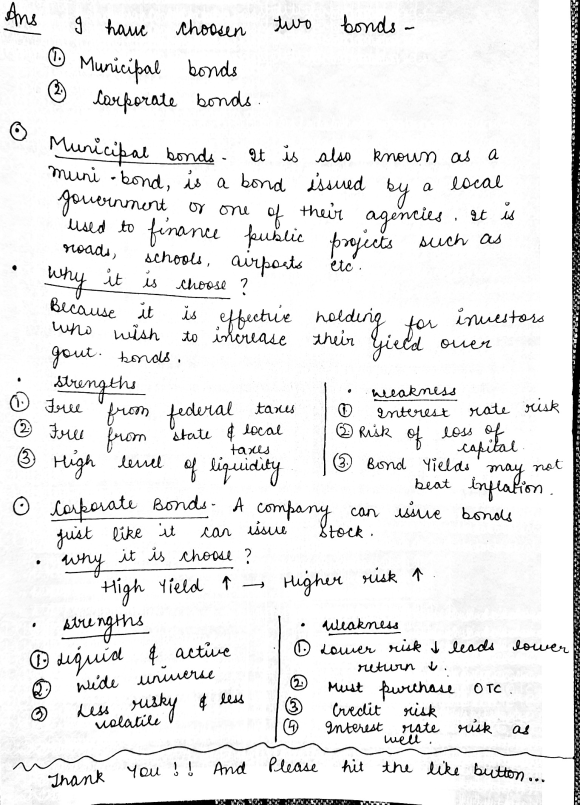 Ans I have choosen two bonds -
① Municipal bonds
② Corporate bonds.
Municipal bonds - It is also known as a
muni-bond, is a bond issued by a local
government or one of their agencies. It is
used to finance public projects such as
roads, schools, airports etc.
• Why it is choose ?
Because it is effective holding for investors
who wish to increase their yield over
govt. bonds.
• Strengths
① Free from federal taxes
② Free from state & local
taxes
③ High level of liquidity
• Weakness
① Interest rate risk
② Risk of loss of
capital.
③ Bond Yields may not
beat Inflation.
Corporate Bonds - A company can issue bonds
just like it can issue stock.
• Why it is choose ?
High Yield ↑ → Higher risk ↑
• Strengths
① Liquid & active
② Wide universe
③ Less risky & less
volatile
• Weakness
① Lower risk ↓ leads lower
return ↓.
② Must purchase OTC.
③ Credit risk
④ Interest rate risk as
well.
Thank You !! And Please hit the like button...